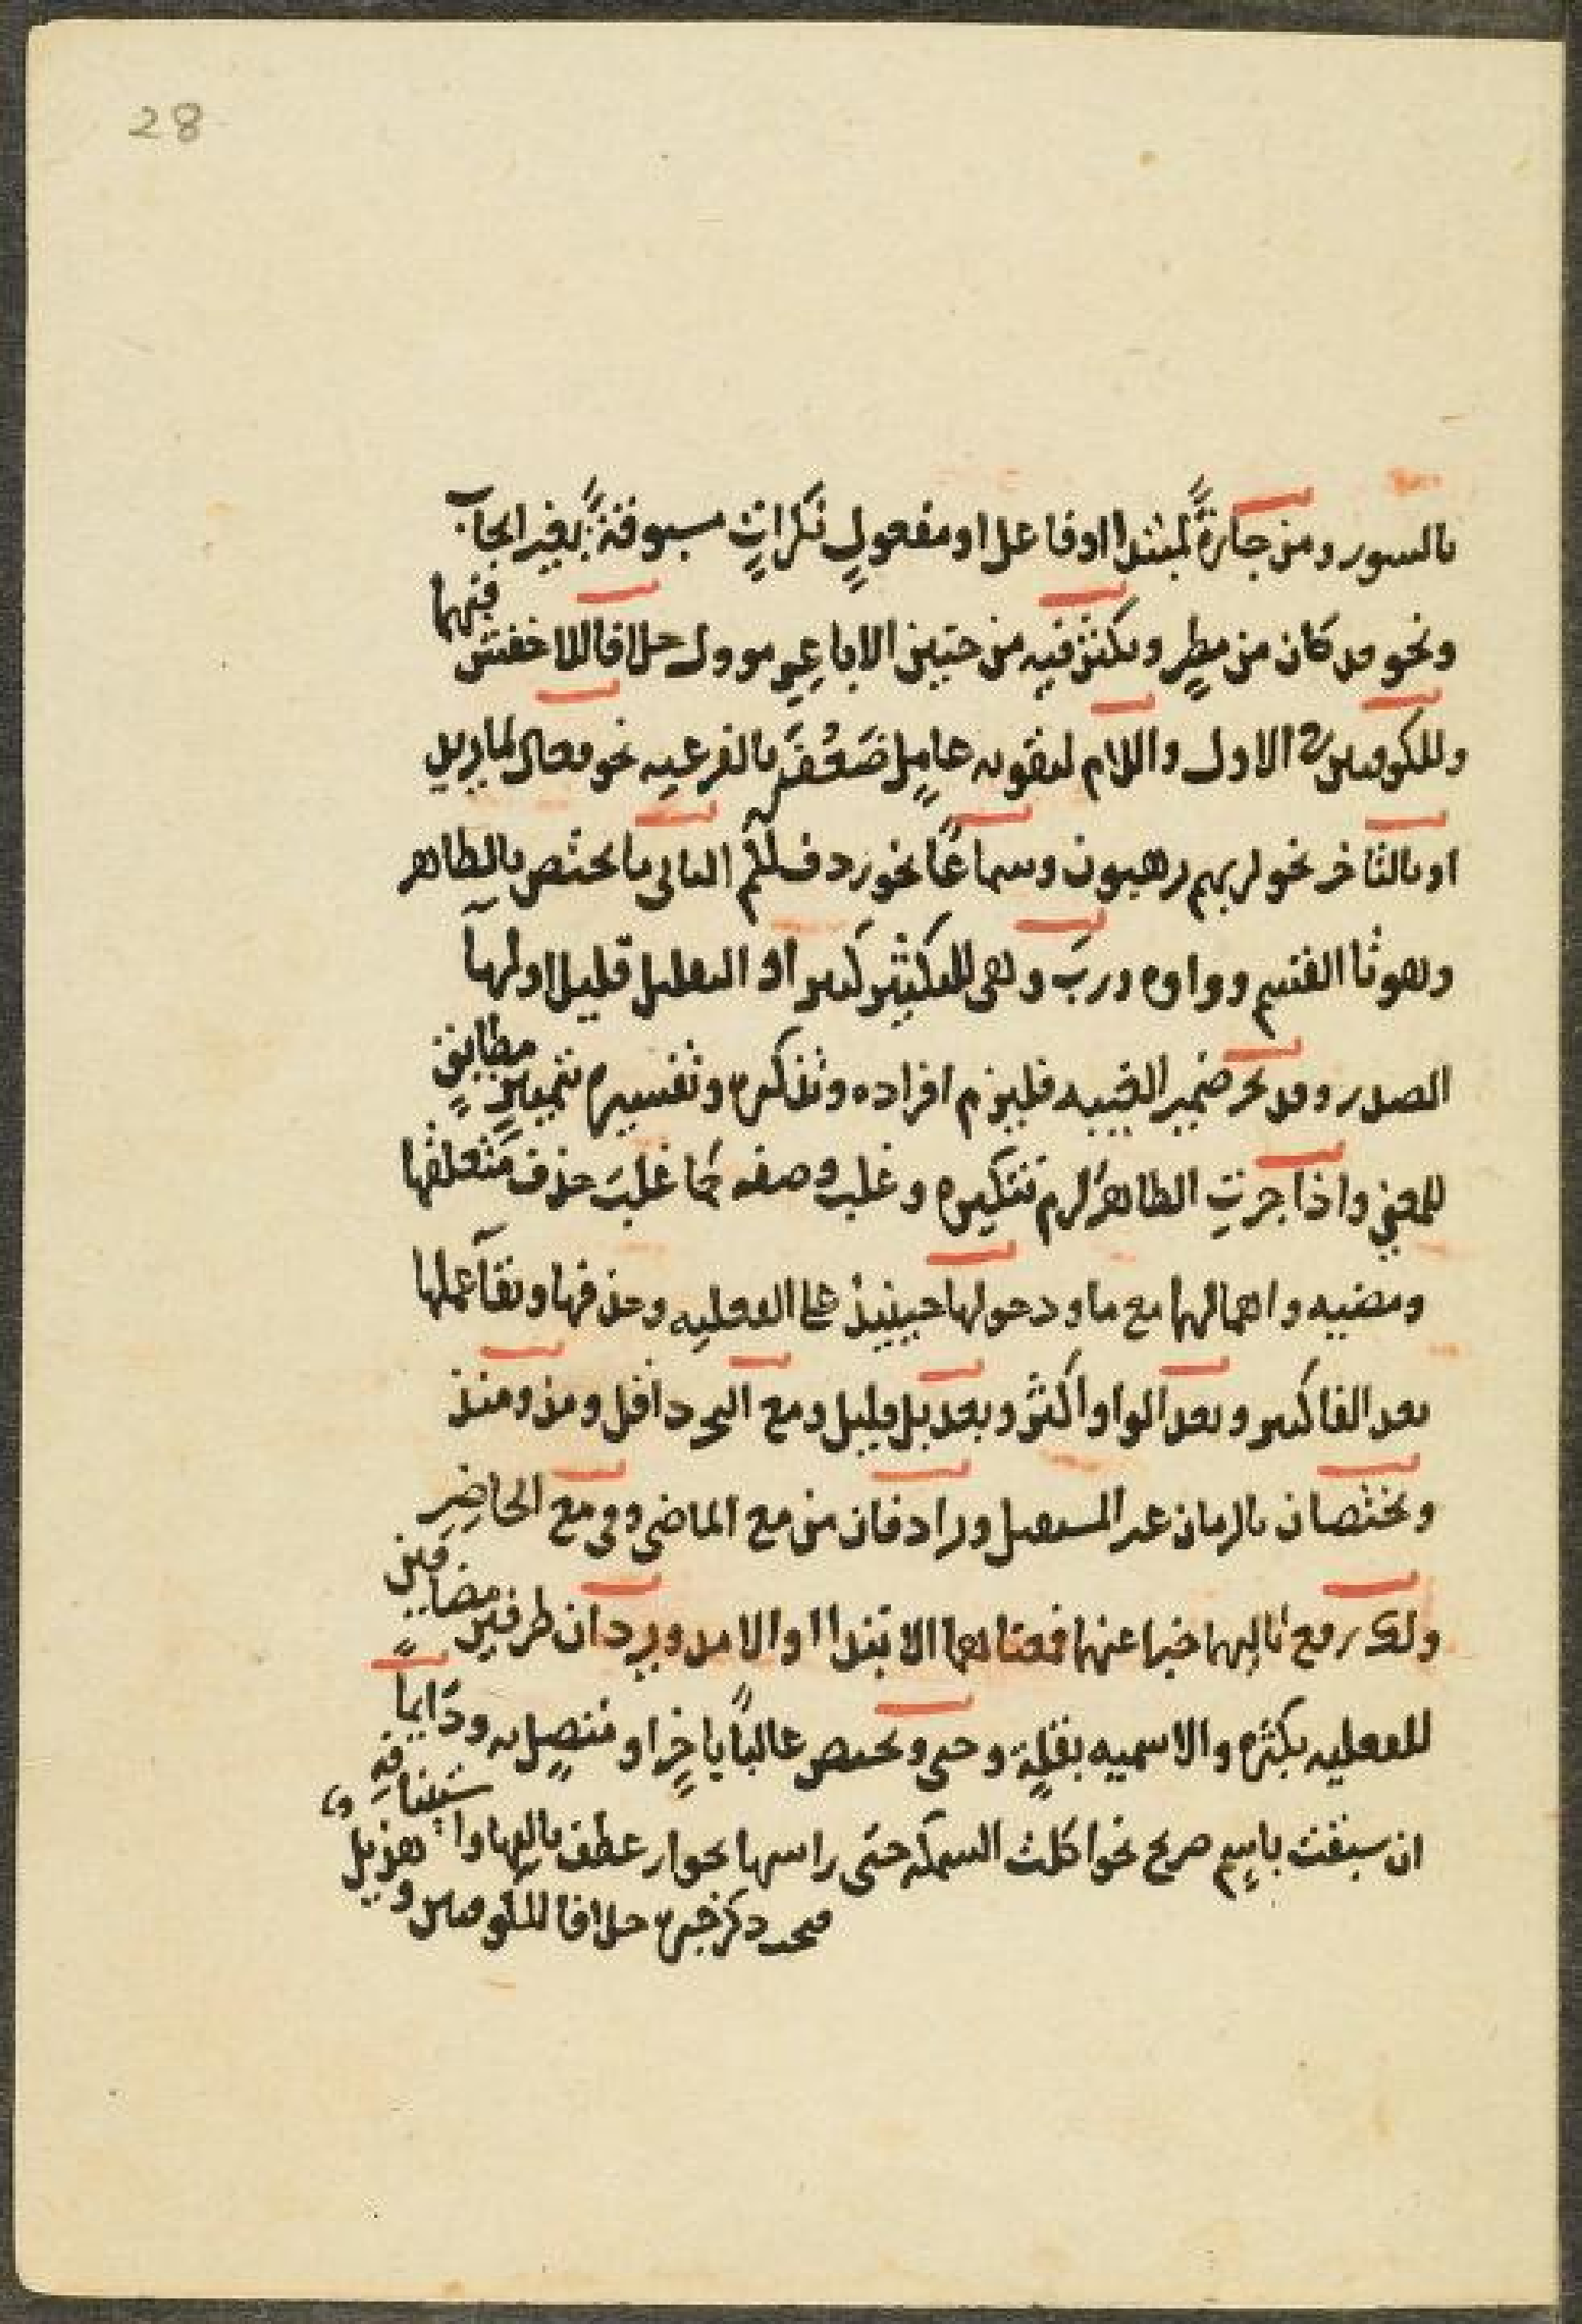 28
بالسور ومن جارةً لمبتدا اوفاعل او مفعولٍ نكراتٍ مسبوقةً بغير ايجاب
ونحو قد كان من مطرٍ ويكثر فيه من حنين الاباعرِ موول خلافا للاخفش فيهما
وللكوفيين في الاول واللام لتقويه عاملٍ ضَعُفَ بالفرعيه نحو فعال لما يريد
او بالتاخر نحو لربهم يرهبون وسماعًا نحو ردف لكم الثاني ما يختص بالظاهر
وهو تا القسم وواوه وربَ وهي للتكثير كثير او التقليل قليل اولها
الصدر وقد تجر ضمير الغيبه فيلزم افراده وتذكيره وتفسيره بتمييزٍ مطابقٍ
للمعني واذا جرتِ الظاهرَ لزم تنكيره وغلب وصفه كما غلبَ حذف مُتعلقها
ومضيه واهمالها مع ما ودخولها حينيذ على الفعليه وحذفها وبقا عملها
بعد الفا كثير وبعد الواو اكثر وبعد بل قليل ومع التجرد اقل ومذ ومنذ
ويختصان بالزمان غير المستقبل ورادفان من مع الماضي وفي مع الحاضِرِ
ولك رفع تاليهما خبرا عنهما فمعناهما الابتدا او الامد ويردان ظرفين مضافين
للفعليه بكثره والاسميه بقلةٍ وحتى وتختص غالبًا باخرٍ او متصلٍ به ودَايماً
ان سبقت باسمٍ صريح نحو اكلت السمكه حتى راسها بجواز عطف تاليها واستينافهِ و
محد ذكر خبره خلافا للكوفيين وهذيل